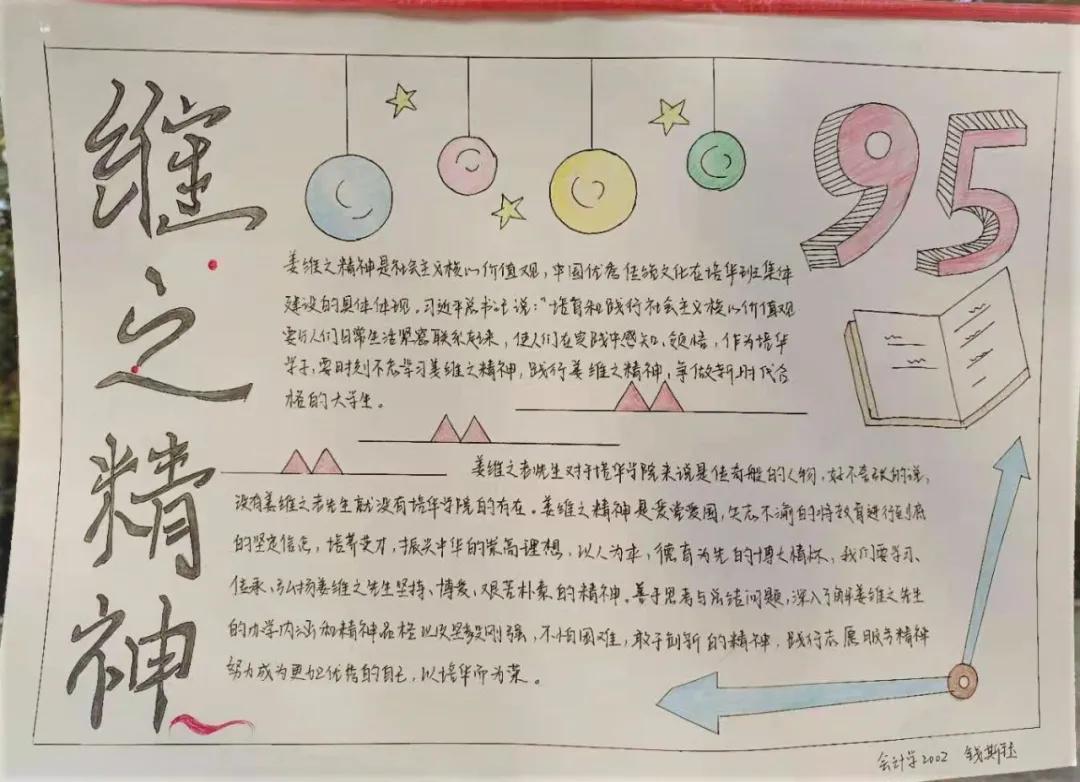 维之精神
95
姜维之精神是社会主义核心价值观,中国优秀传统文化在培华班集体
建设的具体体现。习近平总书记说:"培育和践行社会主义核心价值观
要与人们日常生活紧密联系起来,使人们在实践中感知、领悟,作为培华
学子,要时刻不忘学习姜维之精神,践行姜维之精神,争做新时代合
格的大学生。
姜维之老先生对于培华学院来说是传奇般的人物,好不夸张的说,
没有姜维之老先生就没有培华学院的存在。姜维之精神是爱党爱国,矢志不渝的将教育进行到底
的坚定信念,培养英才,振兴中华的崇高理想,以人为本,德育为先的博大情怀,我们要学习、
传承、弘扬姜维之先生坚持、博爱、艰苦朴素的精神。善于思考与总结问题,深入了解姜维之先生
的办学内涵和精神品格以及坚毅刚强,不怕困难,敢于创新的精神,践行志愿服务精神
努力成为更加优秀的自己,以培华而为荣。
会计学2002 钱斯